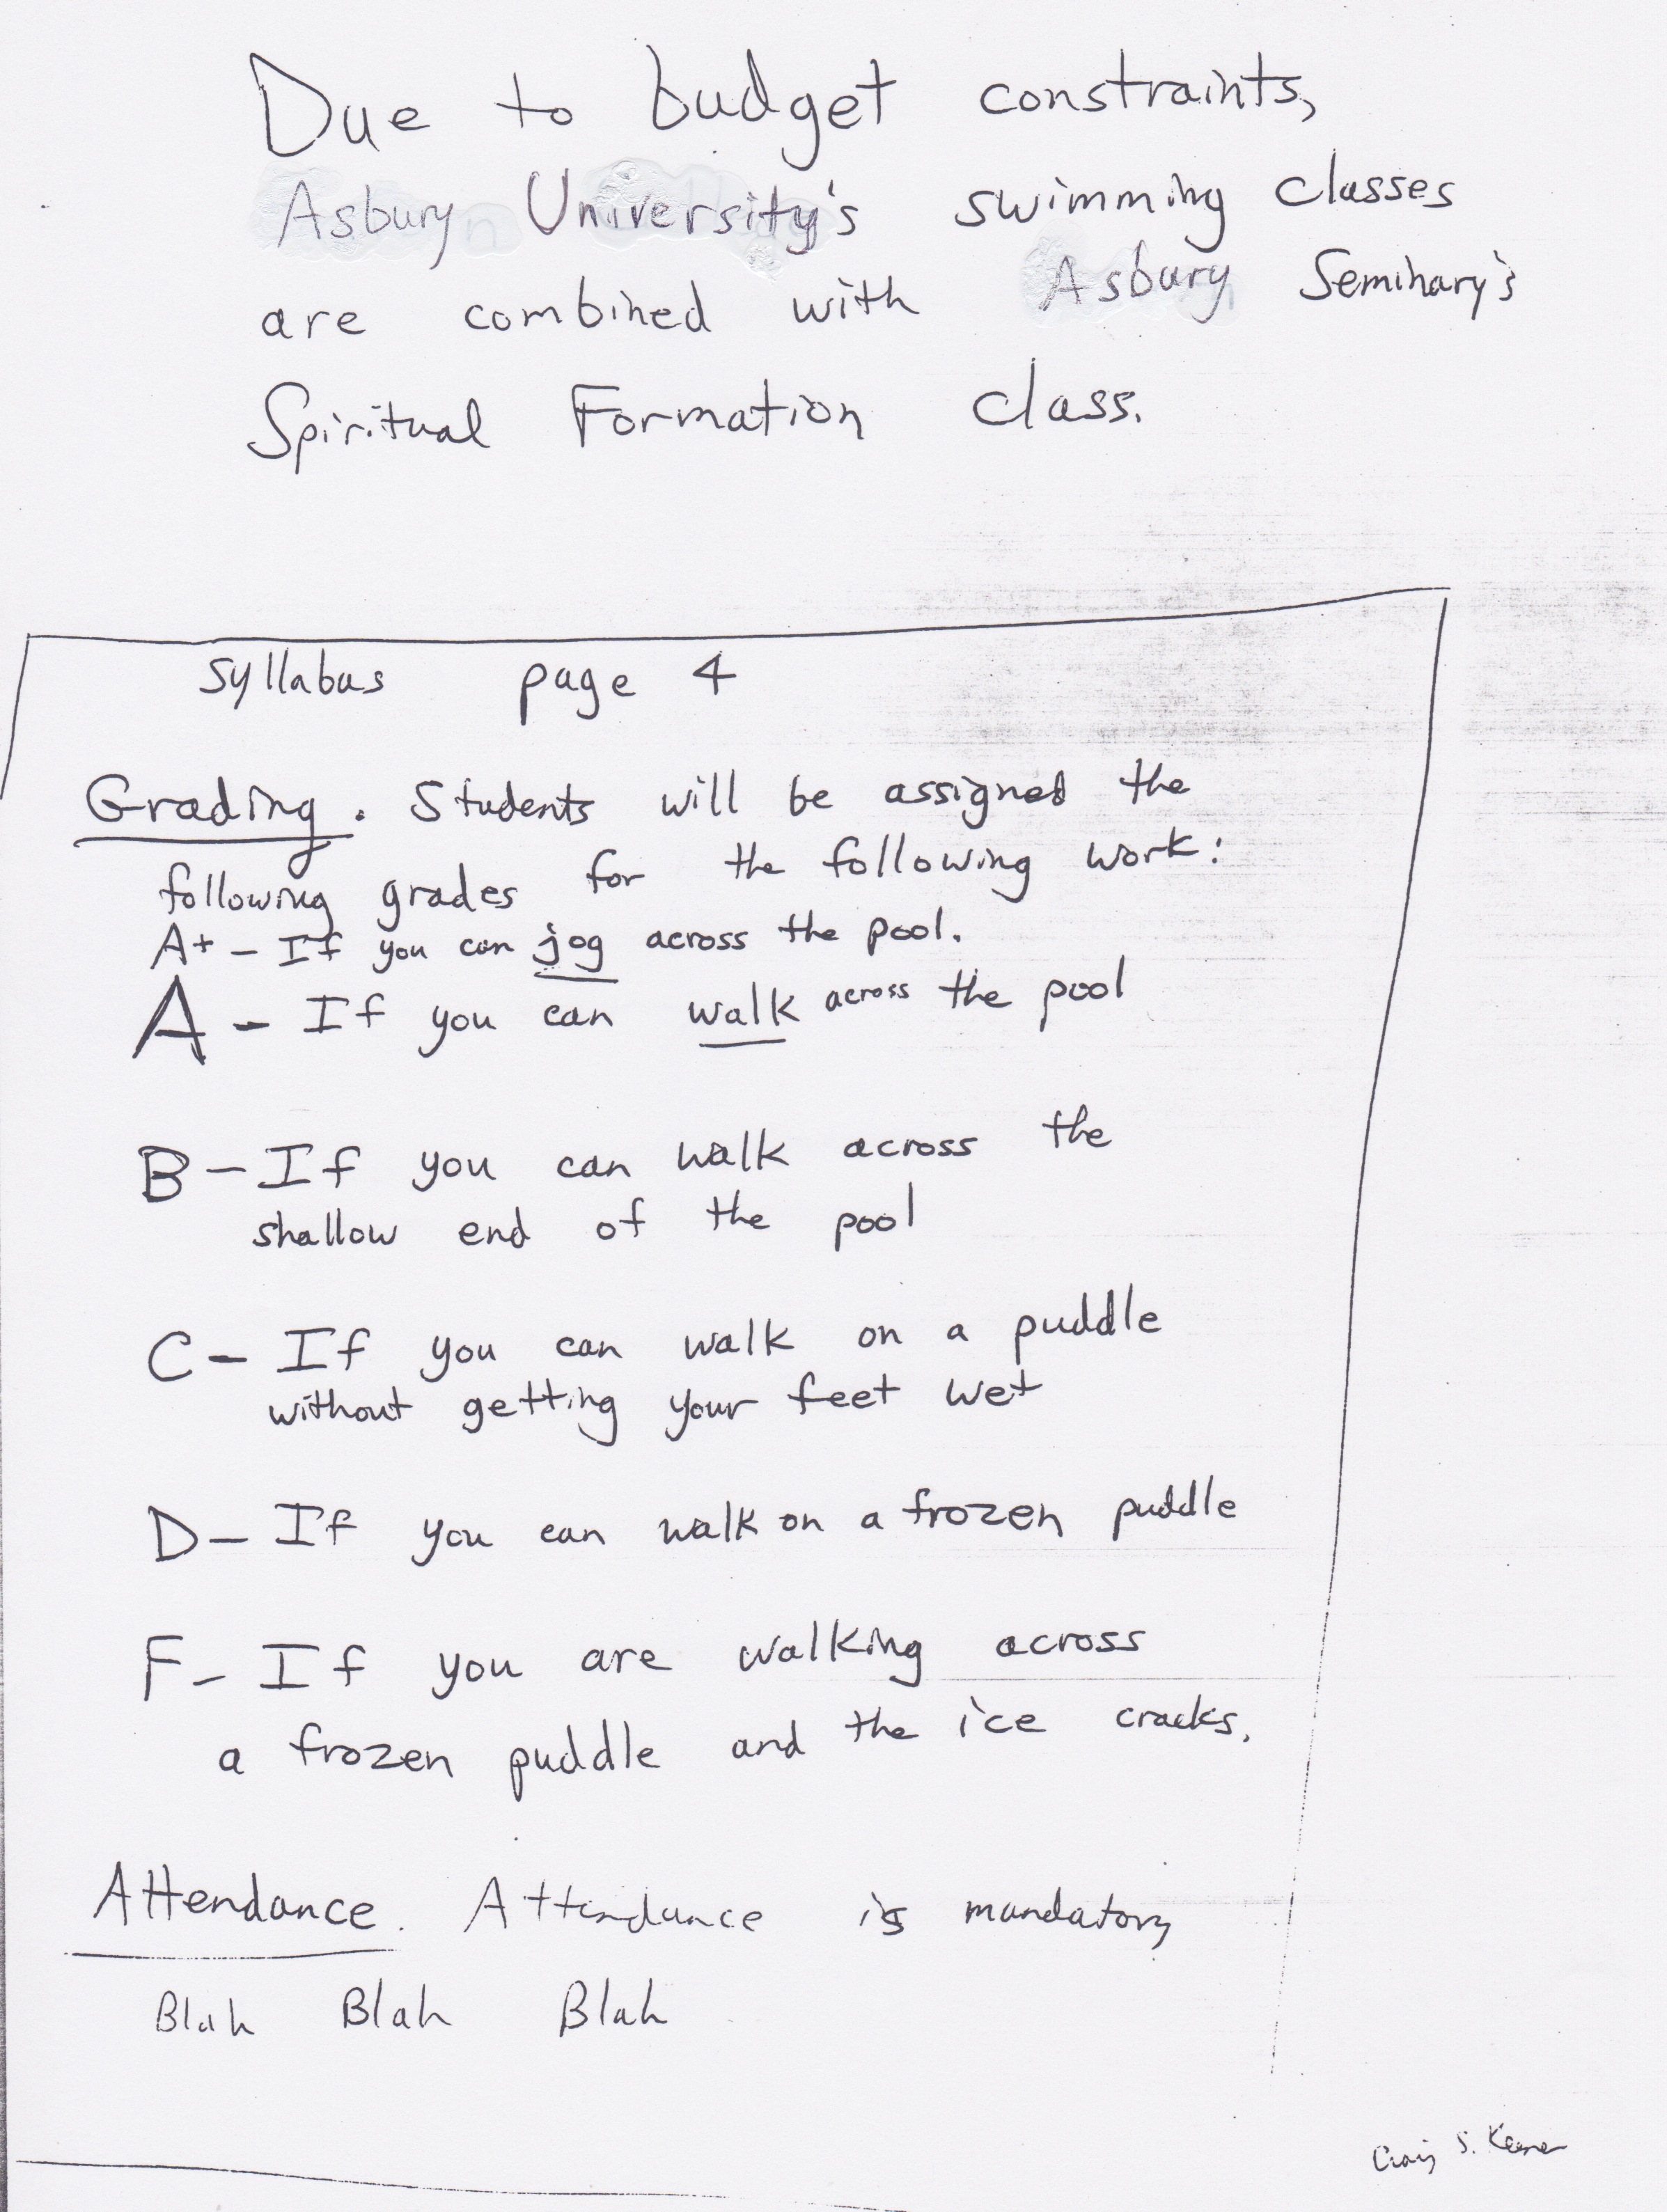 Due to budget constraints,
Asbury University's swimming classes
are combined with Asbury Seminary's
Spiritual Formation class.
Syllabus page 4
Grading. Students will be assigned the
following grades for the following work:
A+ - If you can jog across the pool.
A - If you can walk across the pool
B - If you can walk across the
shallow end of the pool
C - If you can walk on a puddle
without getting your feet wet
D - If you can walk on a frozen puddle
F - If you are walking across
a frozen puddle and the ice cracks.
Attendance. Attendance is mandatory
Blah Blah Blah
Craig S. Keener